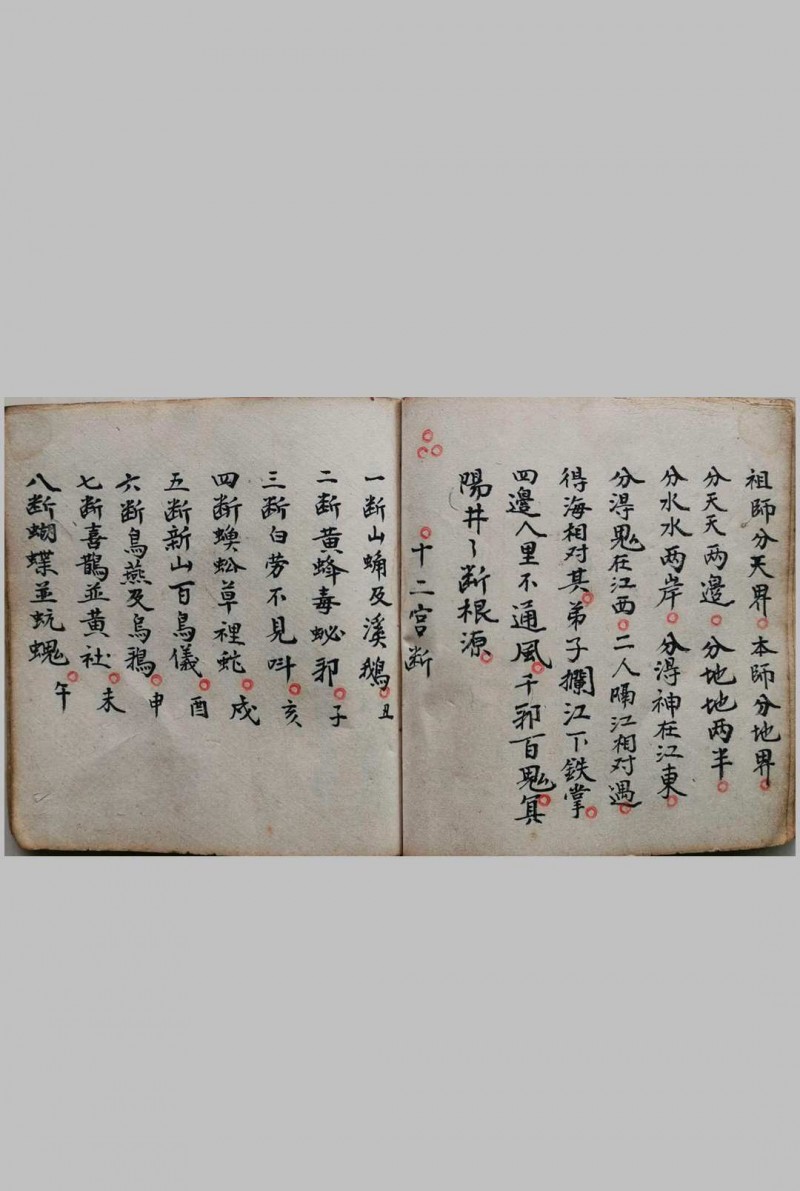 祖師分天界本師分地界
分天天两邊分地地两半
分水水两岸分得神在江東
分淂鬼在江西二人隔江相对遇
得海相对其弟子攔江下鉄掌
四邊八里不通風千邪百鬼冥
陽井〻断根源
十二宫断
一断山蛹及溪鵝丑
二断黄蜂毒蛇邪子
三断白劳不見呌亥
四断蚣草裡蛇戍
五断新山百鳥儀酉
六断鳥燕及烏鴉申
七断喜鵲並黄社未
八断蝴蝶並蚢午